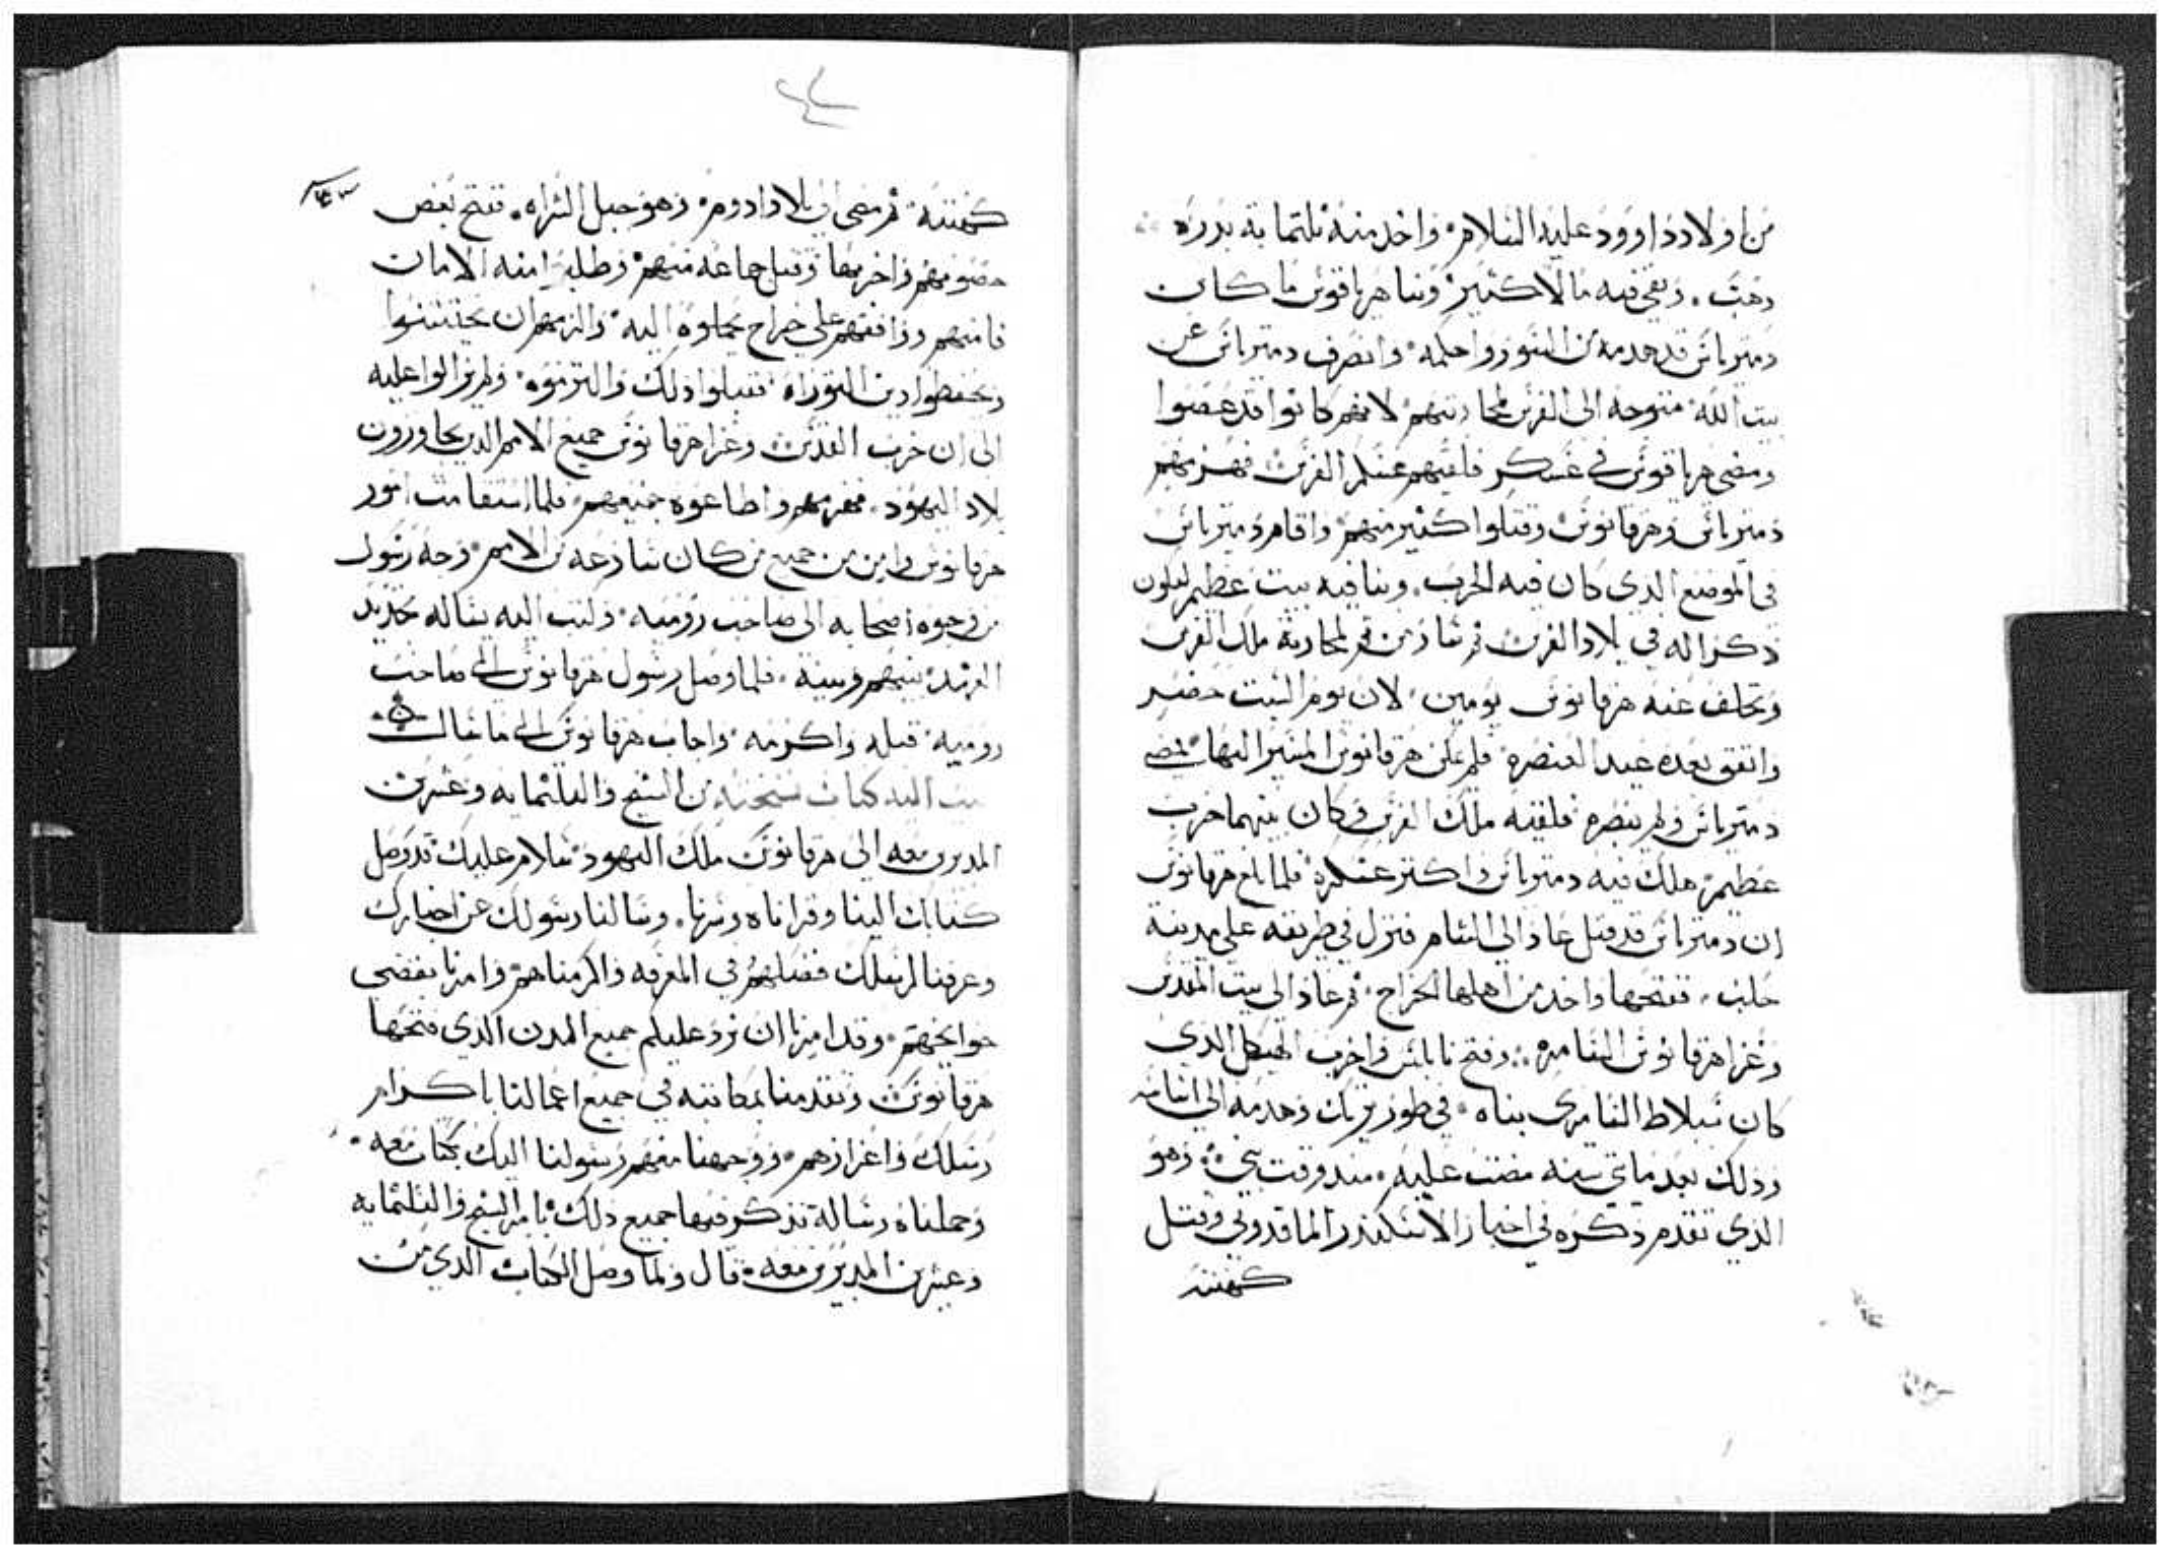 من اولاد داوود عليه السلام واخد منه تلتماية بدره
دهب وبقي فيه مالا كتير وبنا هرقانوس ما كان
دمتريانس قد هدمه من السور واحكمه وانصرف دمتريانس عن
بيت الله متوجه الى الفرس لمحاربتهم لانهم كانوا قد عصوا
ومضى هرقانوس في عسكر فلقيهم عسكر الفرس فهزمهم
دمتريانس وهرقانوس وقتلوا كثير منهم واقام دمتريانس
في الموضع الدي كان فيه الحرب وبنا فيه بيت عظيم ليكون
ذكرا له في بلاد الفرس تم سار من تم لمحاربة ملك الفرس
وتخلف عنه هرقانوس يومين لان يوم السبت حضر
واتفق بعده عيد العنصره فلم يمكن هرقانوس المسير اليها لمضي
دمتريانس ولم ينصره فلقيه ملك الفرس وكان بينهما حرب
عظيم هلك فيه دمتريانس واكتر عسكره فلما بلغ هرقانوس
ان دمتريانس قد قتل عاد الى الشام فنزل في طريقه على مدينة
حلب ففتحها واخد من اهلها الخراج تم عاد الى بيت المقدس
وغزا هرقانوس السامره وفتح نابلس واخرب الهيكل الدي
كان سبلاط السامري بناه في طور بريك وهدمه الى اساسه
ودلك بعد مايتي سنه مضت عليه مند وقت بني وهو
الدي تقدم ذكره في اخبار الاسكندر الماقدوني وقتل
كهنته
كهنته تم مضى الى بلاد ادوم وهو جبل الشراه ففتح بعض
حصونهم واخربها وقتل جماعه منهم وطلبوا منه الامان
فامنهم ووافقهم على خراج يحملوه اليه والزمهم ان يختتنوا
ويحفظوا دين التوراه فقبلوا ذلك والتزموه ولم يزالوا عليه
الى ان خرب القدس وغزا هرقانوس جميع الامم الدين يجاورون
بلاد اليهود فقهرهم واطاعوه جميعهم فلما استقامت امور
هرقانوس وامن من جميع من كان ينازعه من الامم وجه رسول
من وجوه اصحابه الى صاحب روميه وكتب اليه يساله تجديد
العهد بينهم وبينه فلما وصل رسول هرقانوس الى صاحب
روميه قبله واكرمه واجاب هرقانوس الى ما سال
اليه كتاب نسخته من الشيخ والتلتمايه وعشرين
المدبرين معه الى هرقانوس ملك اليهود سلام عليك قد وصل
كتابك الينا وقراناه وسرنا وسالنا رسولك عن اخبارك
وعرفنا لرسلك فضلهم في المعرفه واكرمناهم وامرنا بقضى
حوايجهم وقد امرنا ان نرد عليكم جميع المدن الدي فتحها
هرقانوس وتقدمنا بمكاتبه في جميع اعمالنا باكرام
رسلك واعزازهم ووجهنا معهم رسولنا اليك بكتاب معه
وحملناه رساله تذكر فيها جميع ذلك بامر الشيخ والتلتمايه
وعشرين المدبرين معه قال ولما وصل الكتاب الدي من